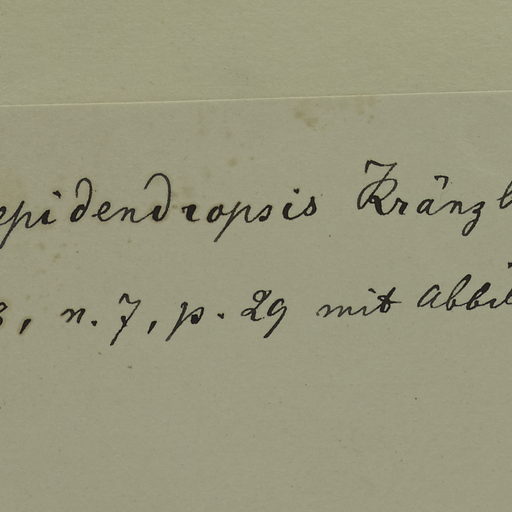 epidendropsis Kränzl
8, n. 7, p. 29 mit Abbil